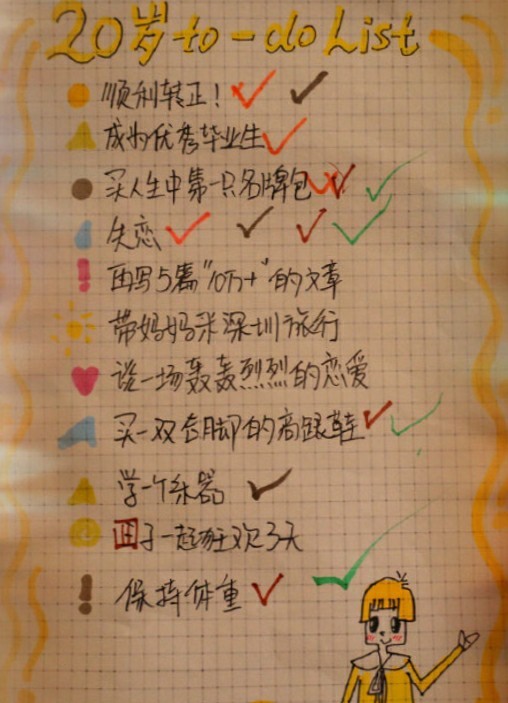 20岁to-do List
顺利转正！
成为优秀毕业生
买人生中第一只名牌包
失恋
再写5篇"10万+"的文章
带妈妈来深圳旅行
谈一场轰轰烈烈的恋爱
买一双合脚的高跟鞋
学一个乐器
四子一起狂欢3天
保持体重